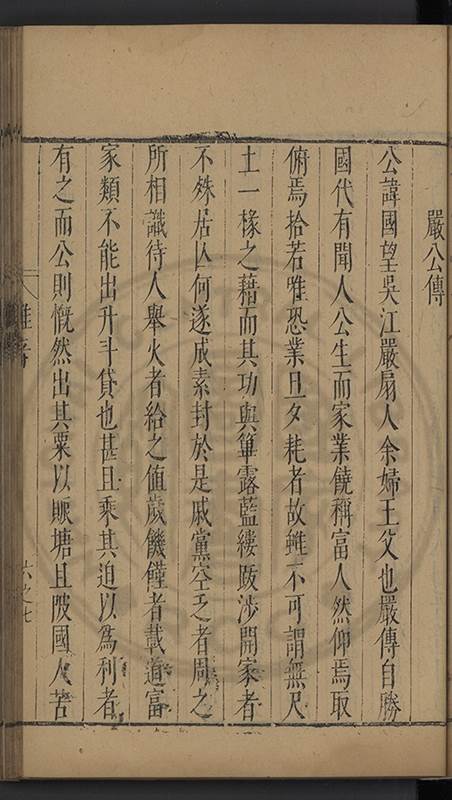 嚴公傳
公諱國望吳江嚴扇人余婦王父也嚴傳自勝
國代有聞人公生而家業饒稱富人然仰焉取
俯焉拾若唯恐業旦夕耗者故雖不可謂無尺
土一椽之藉而其功與篳露藍縷跋涉開家者
不殊居亾何遂成素封於是戚黨空乏者周之
所相識待人舉火者給之值歲饑饉者載道富
家類不能出升斗貸也甚且乘其迫以為利者
有之而公則慨然出其粟以賑塘且陂國人苦
雜著
六之七